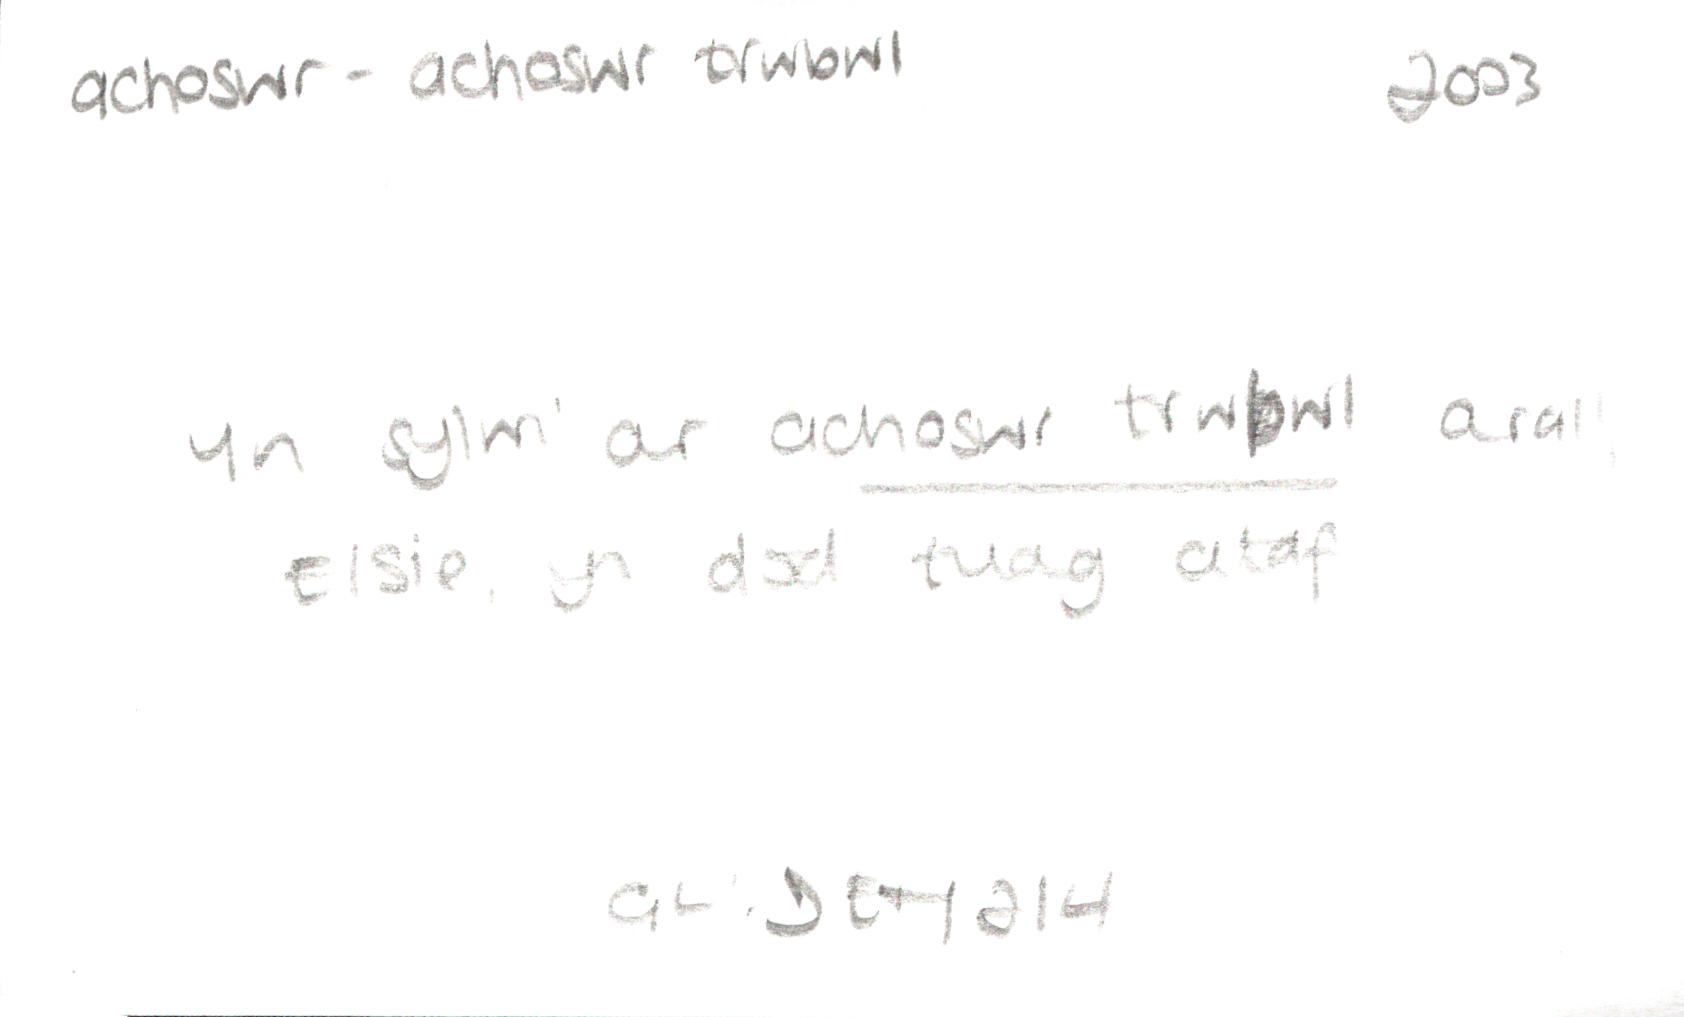 achoswr - achoswr trwbwl 2003
yn sylwi ar achoswr trwbwl arall,
Elsie, yn dod tuag ataf
GL: DETY 214